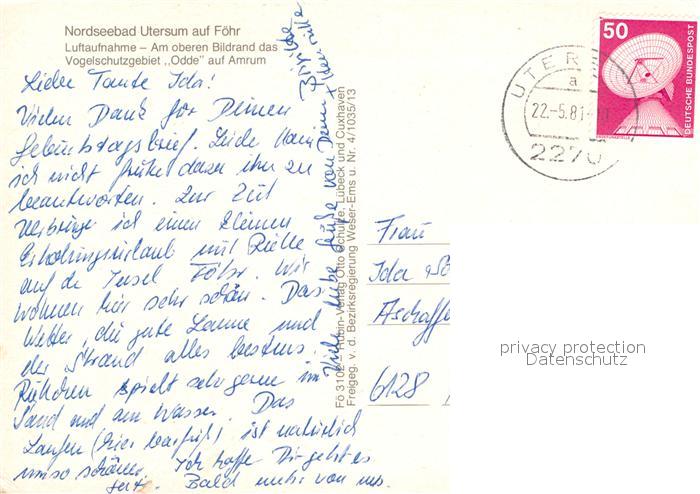 Nordseebad Utersum auf Föhr
Luftaufnahme – Am oberen Bildrand das
Vogelschutzgebiet „Odde" auf Amrum
Liebe Tante Ida!
Vielen Dank für Deinen
Geburtstagsbrief. Leider kam
ich nicht früher dazu ihn zu
beantworten. Zur Zeit
verbringe ich einen kleinen
Erholungsurlaub mit
auf der Insel Föhr. Wir
wohnen hier sehr schön. Das
Wetter, die gute Laune und
der Strand alles bestens.
spielt sehr gerne im
Sand und am Wasser. Das
Laufen (hier barfuß) ist natürlich
umso schöner. Ich hoffe Dir geht es
gut. Bald mehr von uns.
Viele liebe Grüße von Deiner Birgitte
Fö 3102 – Rubin-Verlag Otto Schulze, Lübeck und Cuxhaven
Freigeg. v. d. Bezirksregierung Weser-Ems u. Nr. 4/1035/13
50
DEUTSCHE BUNDESPOST
UTERS
a
22.-5.81
2270
Frau
Ida
Aschaffe
6128
privacy protection
Datenschutz